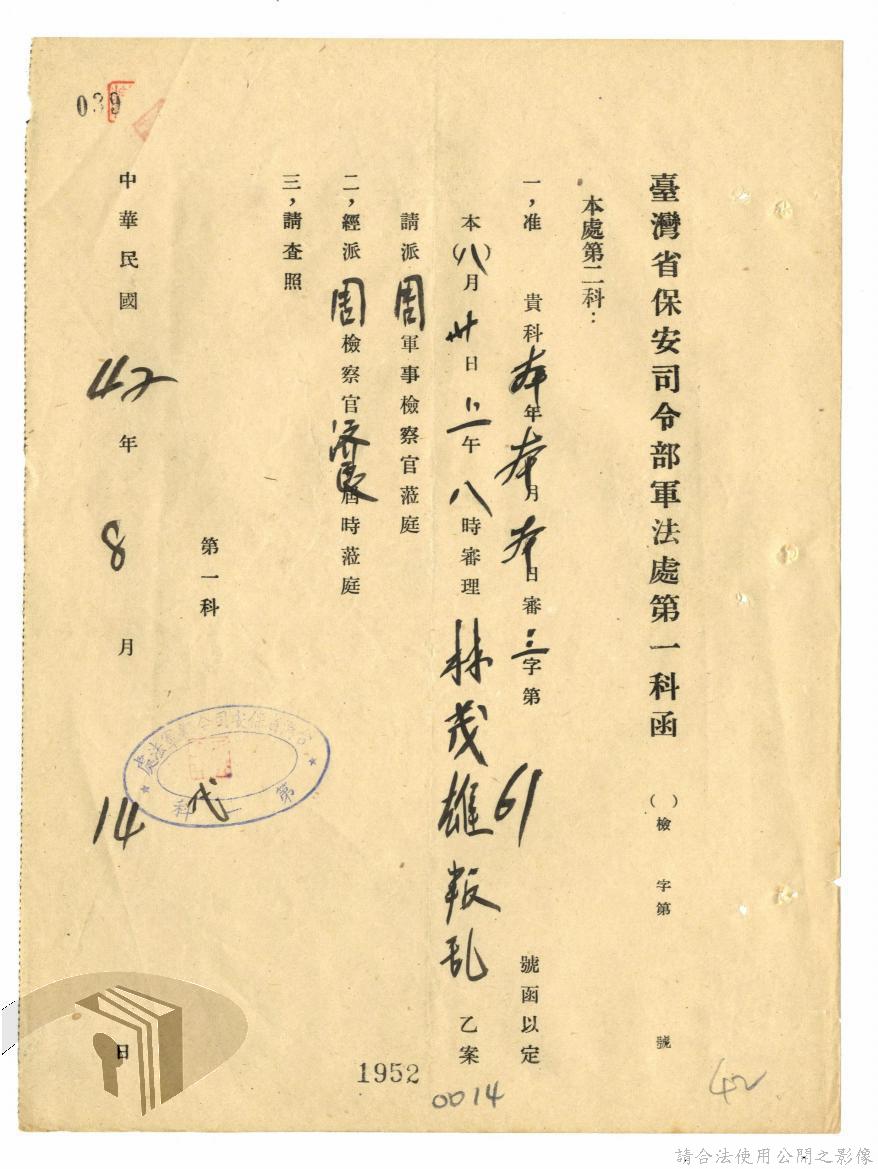 臺灣省保安司令部軍法處第一科函
( )檢 字第 號
本處第二科:
一,准 貴科本年本月本日審三字第 61 號函以定
本(八)月廿日上午八時審理 林茂雄叛乱 乙案
請派周軍事檢察官蒞庭
二,經派周檢察官濟良屆時蒞庭
三,請查照
第一科
代
中華民國42年8月14日
039
1952
0014
42
請合法使用公開之影像